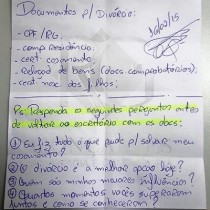 Documentos p/ Divórcio:
30/07/15
- CPF/RG.
- comp. Residência.
- cert. casamento
- relação de bens (docs comprobatórios).
- cert. nasc. dos filhos;
Ps: Responda as seguintes perguntas antes
de voltar ao escritório com os docs:
1) Eu fiz tudo o que pude p/ salvar meu
casamento?
2) O divórcio é a melhor opção hoje?
3) Quais são minhas maiores influências?
4) Quantos momentos vocês superaram
juntos e como se conheceram?